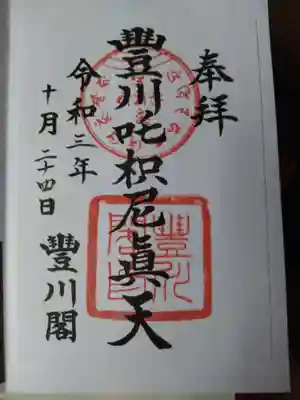 奉拝
豐川吒枳尼眞天
令和三年
十月二十四日
豐川閣